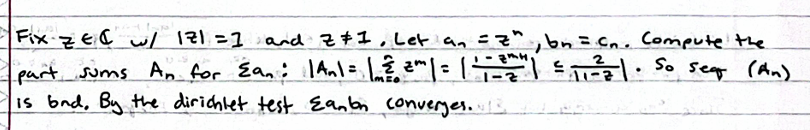 Fix z ∈ ℂ w/ |z| = 1 and z ≠ 1. Let aₙ = zⁿ, bₙ = cₙ. Compute the
part sums Aₙ for Σaₙ: |Aₙ| = |Σₘ₌₀ⁿ zᵐ| = |(1 - zᵐ⁺¹)/(1-z)| ≤ 2/|1-z|. So seq (Aₙ)
is bnd. By the dirichlet test Σaₙbₙ converges.